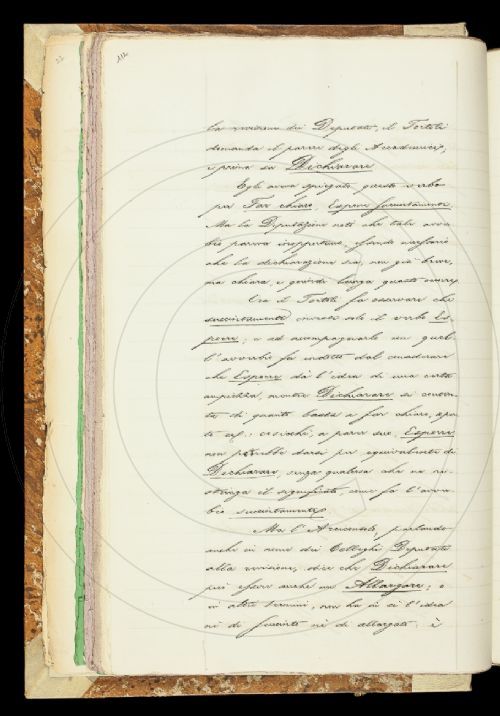 112
la revisione dei Deputati, il Tortoli
domanda il parere degli Accademici,
e prima su Dichiarare
Egli aveva spiegato questo verbo
per Far chiaro, Esporre succintamente.
Ma la Deputazione notò che tale avver-
bio pareva inopportuno, essendo necessario
che la dichiarazione sia, non già breve,
ma chiara, e quindi lunga quanto occorre
Ora il Tortoli fa osservare che
succintamente modifica il verbo Es-
porre; e ad accompagnarlo con quel-
l'avverbio fu indotto dal considerare
che Esporre dà l'idea di una certa
ampiezza, mentre Dichiarare si conten-
ta di quanto basta a far chiaro,
cosicchè, a parer suo, Esporre
non potrebbe darsi per equivalente di
Dichiarare, senza qualcosa che ne re-
stringa il significato, come fa l'avver-
bio succintamente
Ma l'Arciconsolo, parlando
anche in nome dei Colleghi Deputati
alla revisione, dice che Dichiarare
può essere anche un Allargare; e
in altri termini, non ha in sè l'idea
nè di succinto nè di allargato: è